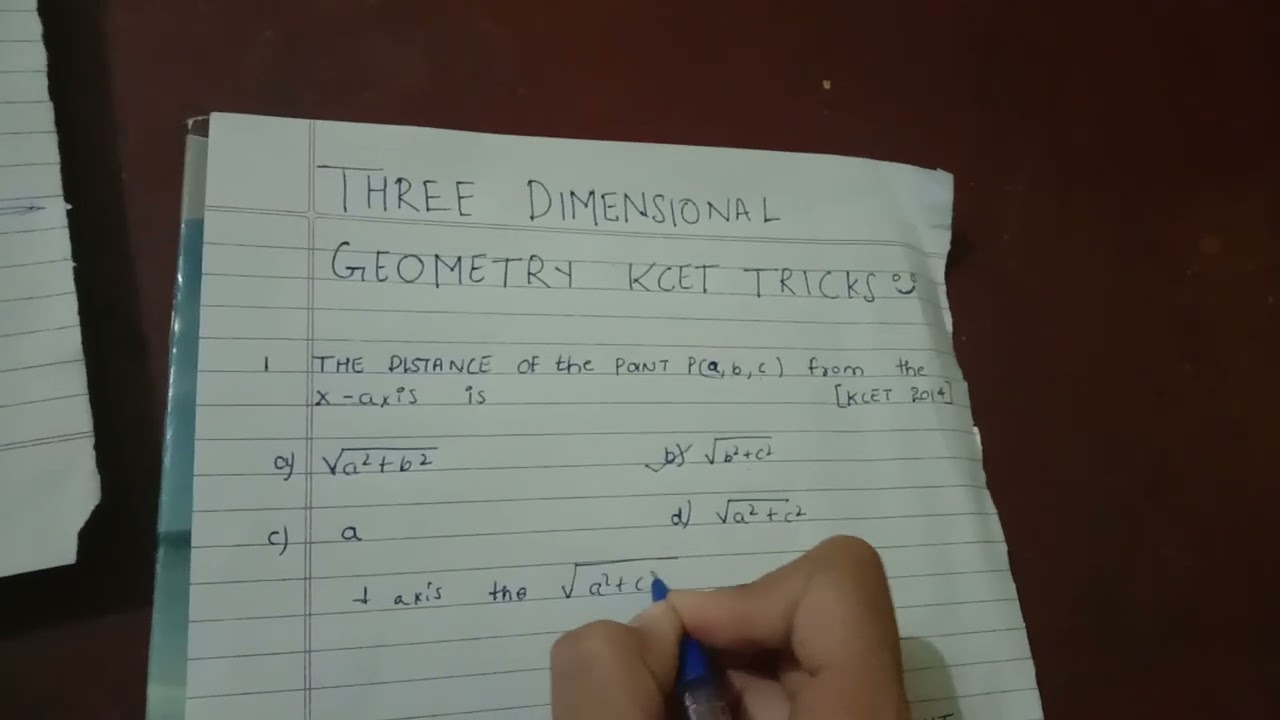 THREE DIMENSIONAL
GEOMETRY KCET TRICKS
1 THE DISTANCE OF the POINT P(a, b, c) from the
x-axis is [KCET 2014]
a) √a²+b² b) √b²+c²
c) a d) √a²+c²
axis the √a²+c